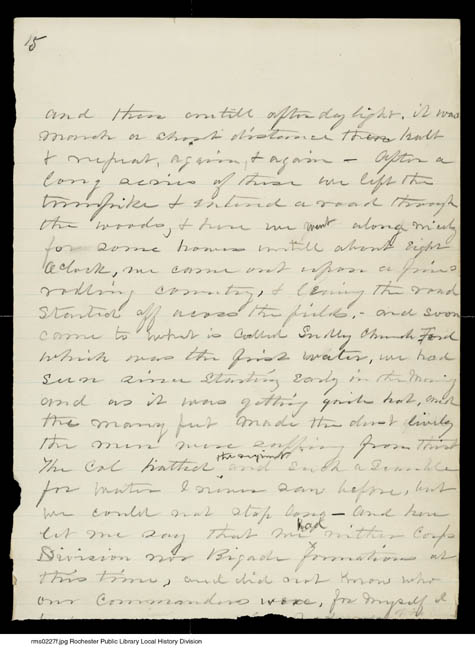 15
and then untill after day light, it was
March a short distance then halt
& repeat, again, & again - After a
long series of these we left the
turnpike & entered a road through
the woods, & here we went along nicely
for some hours untill about Eight
Oclock, we came out upon a fine
rolling country, & leaving the road
started off across the fields, - and soon
came to what is called Sudley Church Ford
which was the first water, we had
seen since starting Early in the Morning
and as it was getting quite hot, and
the many feet made the dust lively
the men were suffering from thirst
The Col halted the regiment and such a scramble
for water I never saw before, but
we could not stop long - and here
let me say that we had neither Corps
Division nor Brigade formations at
this time, and did not know who
our Commanders were, for myself I
rms0227f.jpg Rochester Public Library Local History Division